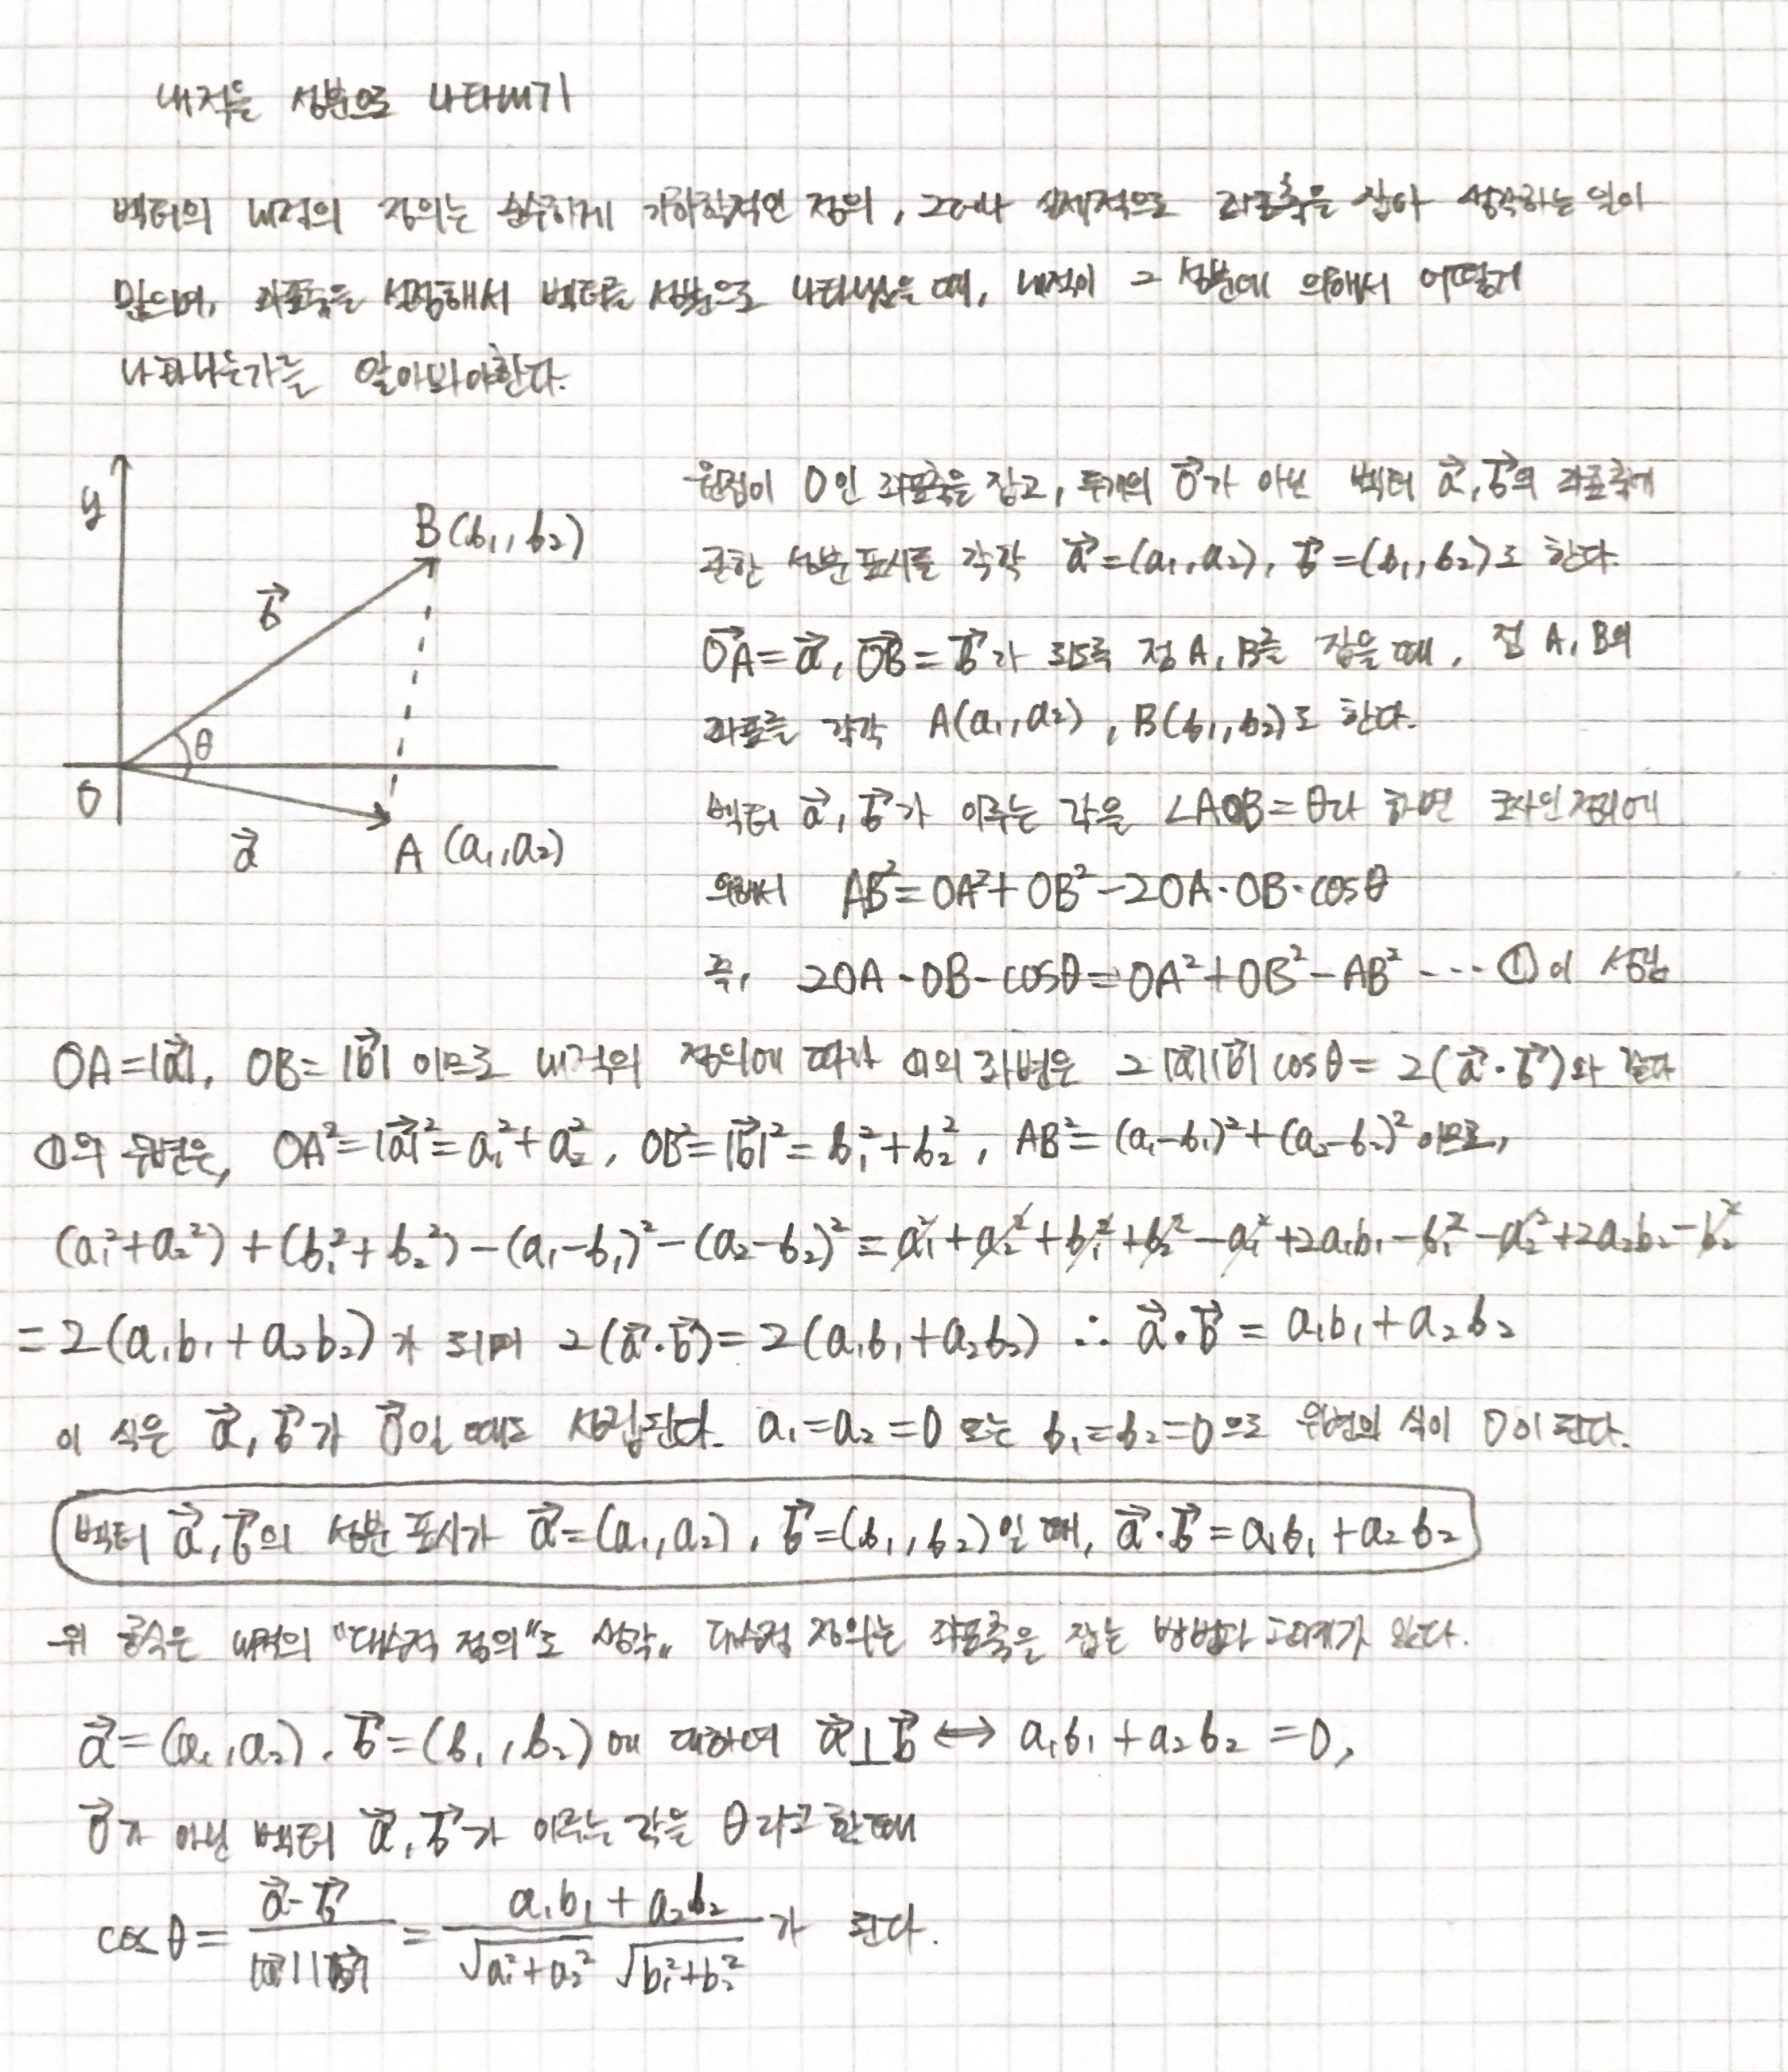 내적을 성분으로 나타내기
벡터의 내적의 정의는 순수하게 기하학적인 정의, 그러나 실제적으로 좌표축을 잡아 생각하는 일이
많으며, 좌표축을 설정해서 벡터를 성분으로 나타냈을 때, 내적이 그 성분에 의해서 어떻게
나타나는가를 알아봐야한다.
y
B(b₁, b₂)
b⃗
θ
O
a⃗
A (a₁, a₂)
원점이 O인 좌표축을 잡고, 두개의 0⃗가 아닌 벡터 a⃗, b⃗의 좌표축에
관한 성분 표시를 각각 a⃗=(a₁, a₂), b⃗=(b₁, b₂)로 한다.
OA⃗=a⃗, OB⃗=b⃗가 되도록 점 A, B를 잡을 때, 점 A, B의
좌표를 각각 A(a₁, a₂), B(b₁, b₂)로 한다.
벡터 a⃗, b⃗가 이루는 각을 ∠AOB=θ라 하면 코사인 정리에
의해서 AB²=OA²+OB²-2OA·OB·cosθ
즉, 2OA·OB·cosθ=OA²+OB²-AB² ---- ①이 성립
OA=|a⃗|, OB=|b⃗| 이므로 내적의 정의에 따라 ①의 좌변은 2|a⃗||b⃗|cosθ=2(a⃗·b⃗)와 같다
①의 우변은, OA²=|a⃗|²=a₁²+a₂², OB²=|b⃗|²=b₁²+b₂², AB²=(a₁-b₁)²+(a₂-b₂)² 이므로,
(a₁²+a₂²)+(b₁²+b₂²)-(a₁-b₁)²-(a₂-b₂)²=a₁²+a₂²+b₁²+b₂²-a₁²+2a₁b₁-b₁²-a₂²+2a₂b₂-b₂²
=2(a₁b₁+a₂b₂)가 되며 2(a⃗·b⃗)=2(a₁b₁+a₂b₂) ∴ a⃗·b⃗=a₁b₁+a₂b₂
이 식은 a⃗, b⃗가 0⃗일 때도 성립된다. a₁=a₂=0 또는 b₁=b₂=0으로 우변의 식이 0이 된다.
벡터 a⃗, b⃗의 성분 표시가 a⃗=(a₁, a₂), b⃗=(b₁, b₂)일 때, a⃗·b⃗=a₁b₁+a₂b₂
위 공식은 내적의 "대수적 정의"로 생각, 대수적 정의는 좌표축을 잡는 방법과 관계가 없다.
a⃗=(a₁, a₂), b⃗=(b₁, b₂)에 대하여 a⃗⊥b⃗ ⟺ a₁b₁+a₂b₂=0,
0⃗가 아닌 벡터 a⃗, b⃗가 이루는 각을 θ라고 할때
cosθ = a⃗·b⃗ / |a⃗||b⃗| = a₁b₁+a₂b₂ / √(a₁²+a₂²) √(b₁²+b₂²) 가 된다.